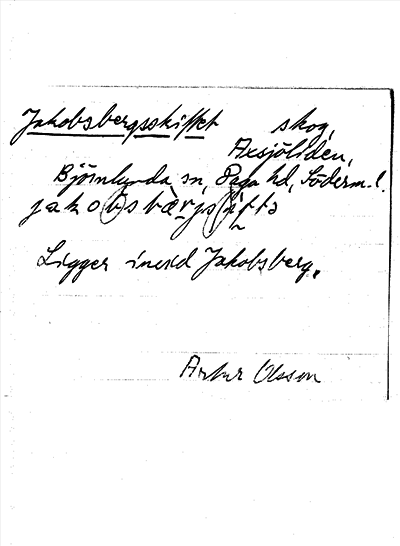 Jakobsbergsskiftet skog,
Axsjöliden,
Björnlunda sn, Daga hd, Söderm. l.
jakobsbærjsiftə
Ligger invid Jakobsberg.
Artur Olsson